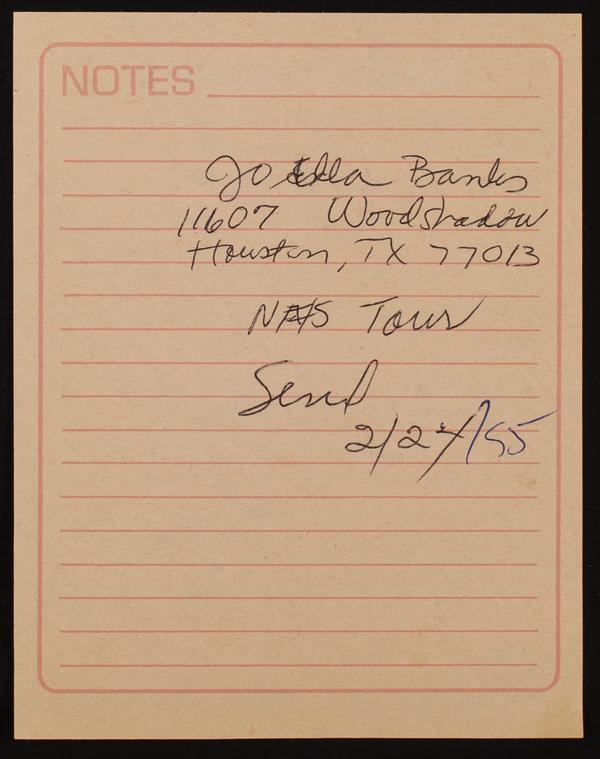 NOTES
Jo Ella Banks
11607 Woodshadow
Houston, TX 77013
Tour
Send
2/24/55